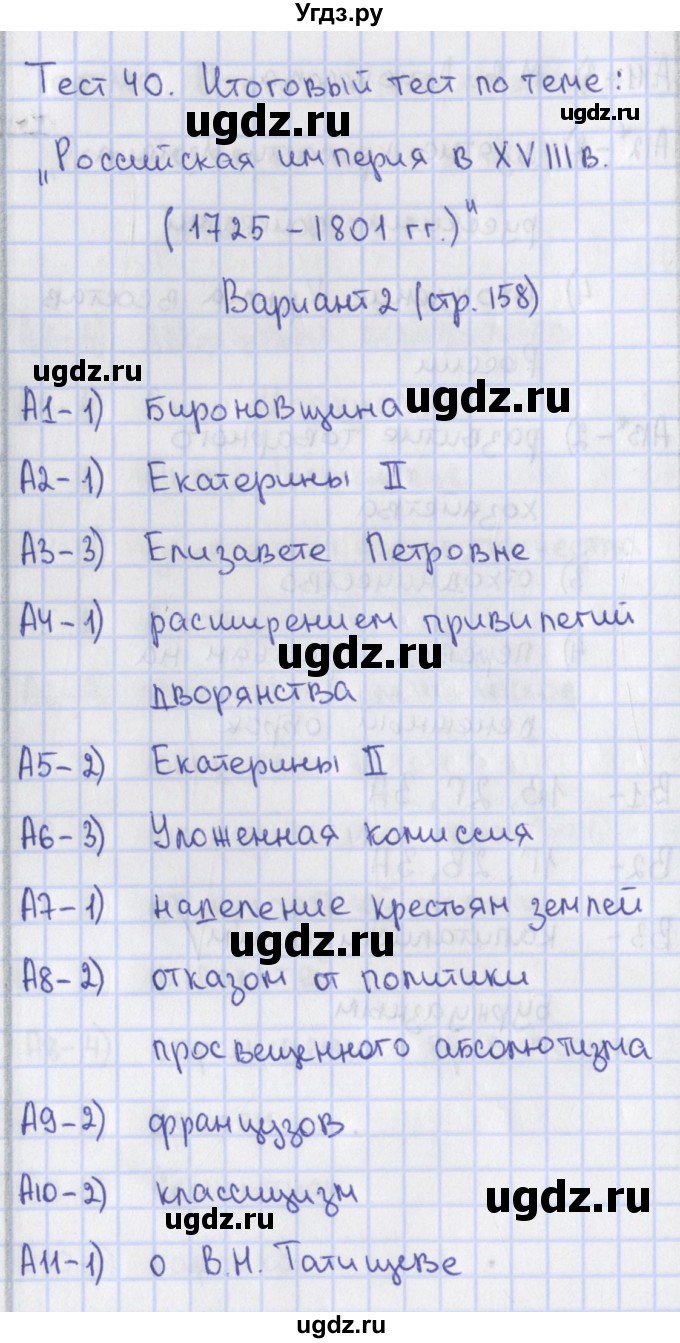 Угдз.ру
Тест 40. Итоговый тест по теме:
„Российская империя в XVIII в.
(1725 – 1801 гг.)"
Вариант 2 (стр. 158)
А1-1) Бироновщина
А2-1) Екатерины II
А3-3) Елизавете Петровне
А4-1) расширением привилегий
дворянства
А5-2) Екатерины II
А6-3) Уложенная комиссия
А7-1) наделение крестьян землей
А8-2) отказом от политики
просвещенного абсолютизма
А9-2) французов
А10-2) классицизм
А11-1) о В.Н. Татищеве
ugdz.ru
ugdz.ru
ugdz.ru
ugdz.ru
ugdz.ru
ugdz.ru
ugdz.ru
ugdz.ru
ugdz.ru
ugdz.ru